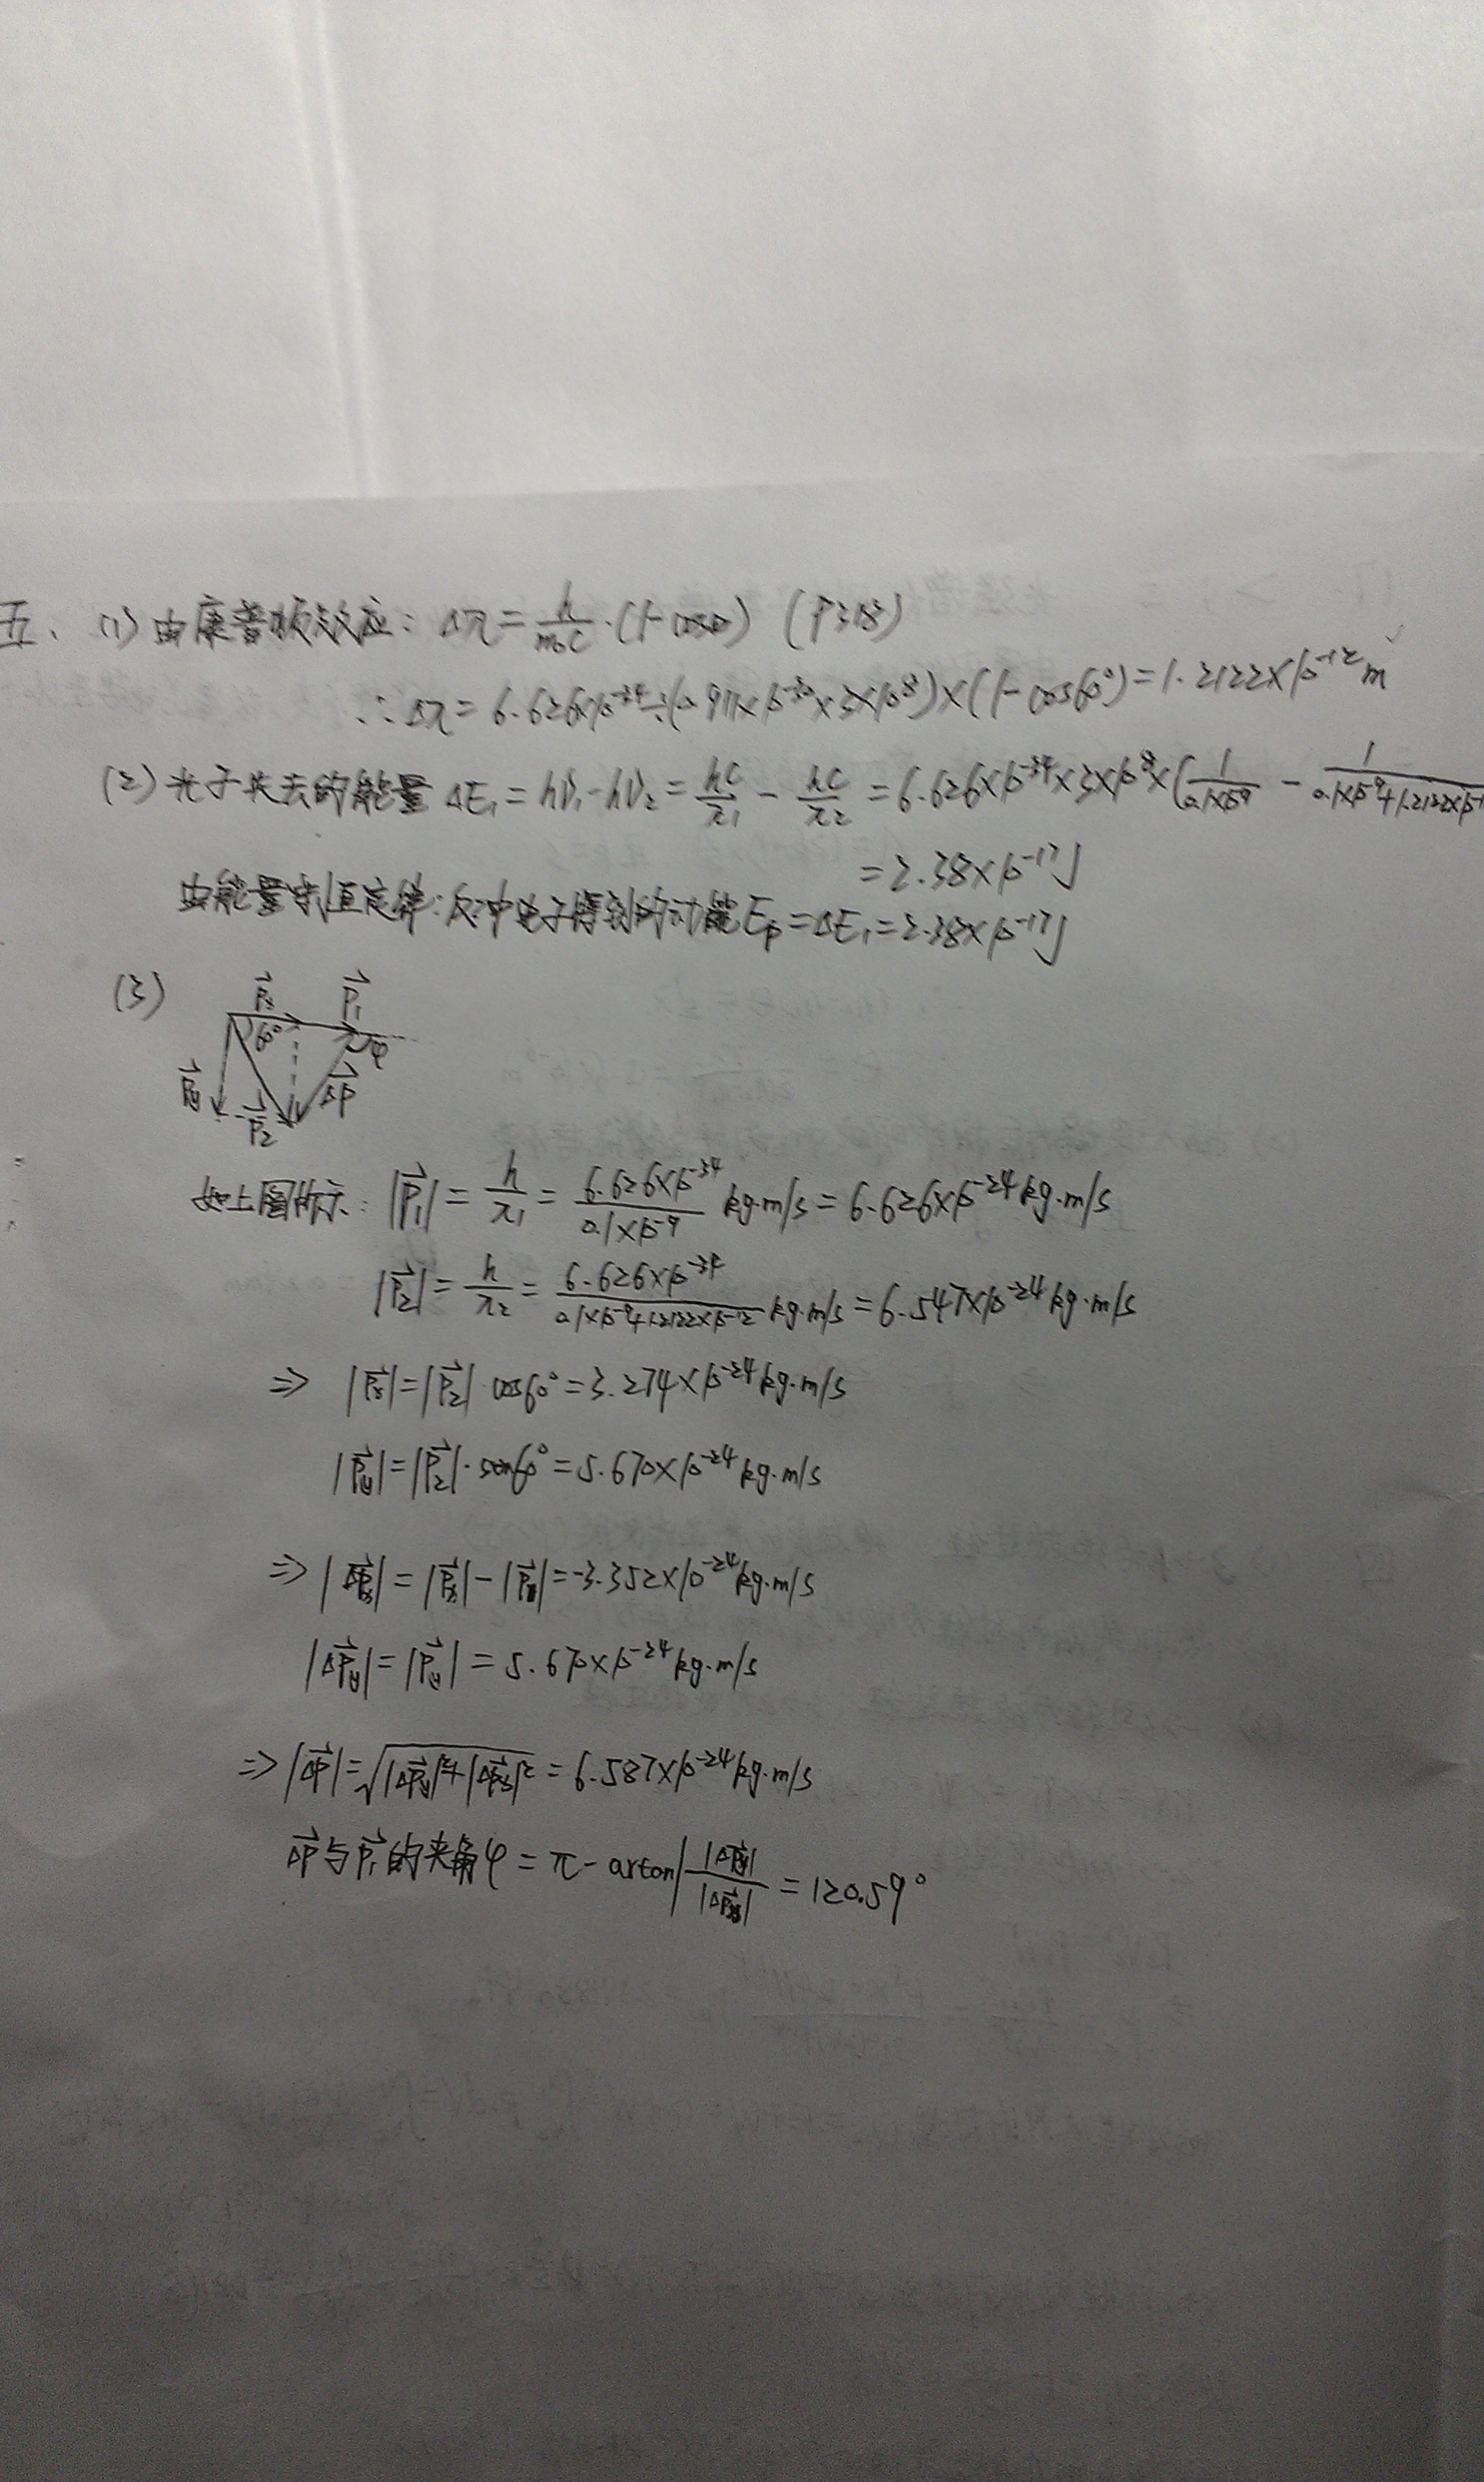 五、(1)由康普顿效应：Δλ=h/m₀c·(1-cosθ) (P318)
∴Δλ=6.626×10⁻³⁴÷(0.911×10⁻³⁰×3×10⁸)×(1-cos60°)=1.2122×10⁻¹²m
(2)光子失去的能量 ΔE₁=hν₁-hν₂=hc/λ₁-hc/λ₂=6.626×10⁻³⁴×3×10⁸×(1/0.1×10⁻⁹-1/0.1×10⁻⁹+1.2122×10⁻¹
=2.38×10⁻¹⁷J
由能量守恒定律：反冲电子得到的动能Eₚ=ΔE₁=2.38×10⁻¹⁷J
(3)
Px P₁
60° φ
Py P₂ ΔP
如上图所示：|P₁|=h/λ₁=6.626×10⁻³⁴/0.1×10⁻⁹ kg·m/s=6.626×10⁻²⁴kg·m/s
|P₂|=h/λ₂=6.626×10⁻³⁴/0.1×10⁻⁹+1.2122×10⁻¹² kg·m/s=6.547×10⁻²⁴kg·m/s
⇒ |Px|=|P₂|·cos60°=3.274×10⁻²⁴kg·m/s
|Py|=|P₂|·sin60°=5.670×10⁻²⁴kg·m/s
⇒ |ΔPx|=|Px|-|P₁|=-3.352×10⁻²⁴kg·m/s
|ΔPy|=|Py|=5.670×10⁻²⁴kg·m/s
⇒|ΔP|=√|ΔPy|²+|ΔPx|²=6.587×10⁻²⁴kg·m/s
ΔP与P₁的夹角φ=π-arctan|ΔPy|/|ΔPx|=120.59°